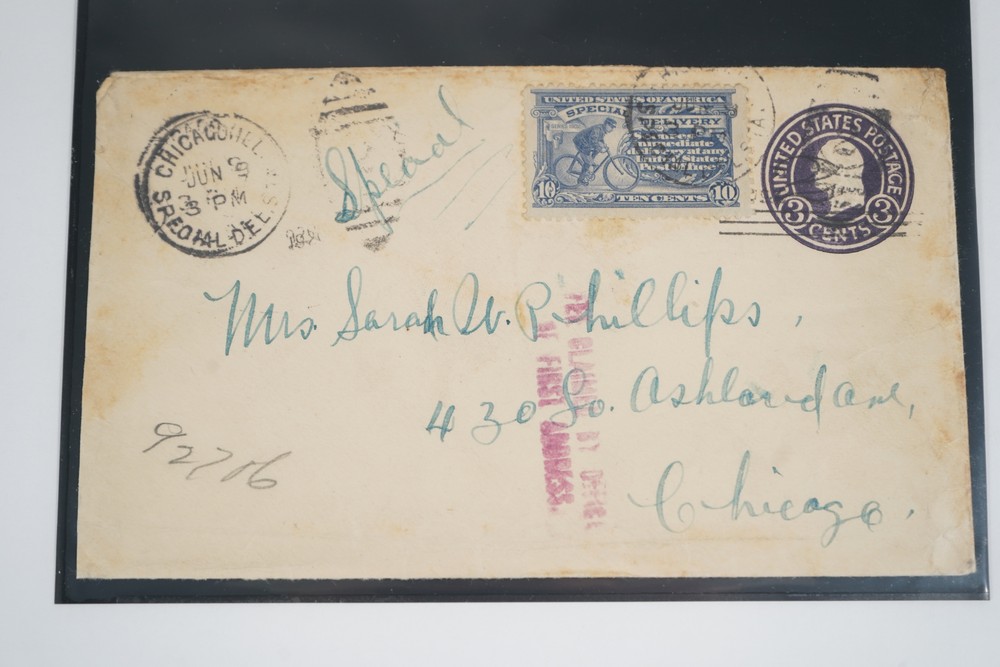 CHICAGO, ILL.
JUN 9
3 PM
SPECIAL DEL.
Special
UNITED STATES OF AMERICA
SPECIAL DELIVERY
immediate
delivery at any
United States
Post office
10 10
TEN CENTS
UNITED STATES POSTAGE
3 3
CENTS
Mrs. Sarah W. Phillips,
430 So. Ashland Ave,
Chicago.
92706
BY OFFICE
FIRST ADDRESS.